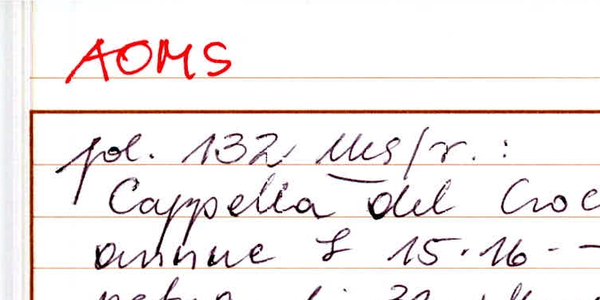 AOMS
fol. 132 Ms/r. :
Cappella del Croc
annue £ 15.16 -